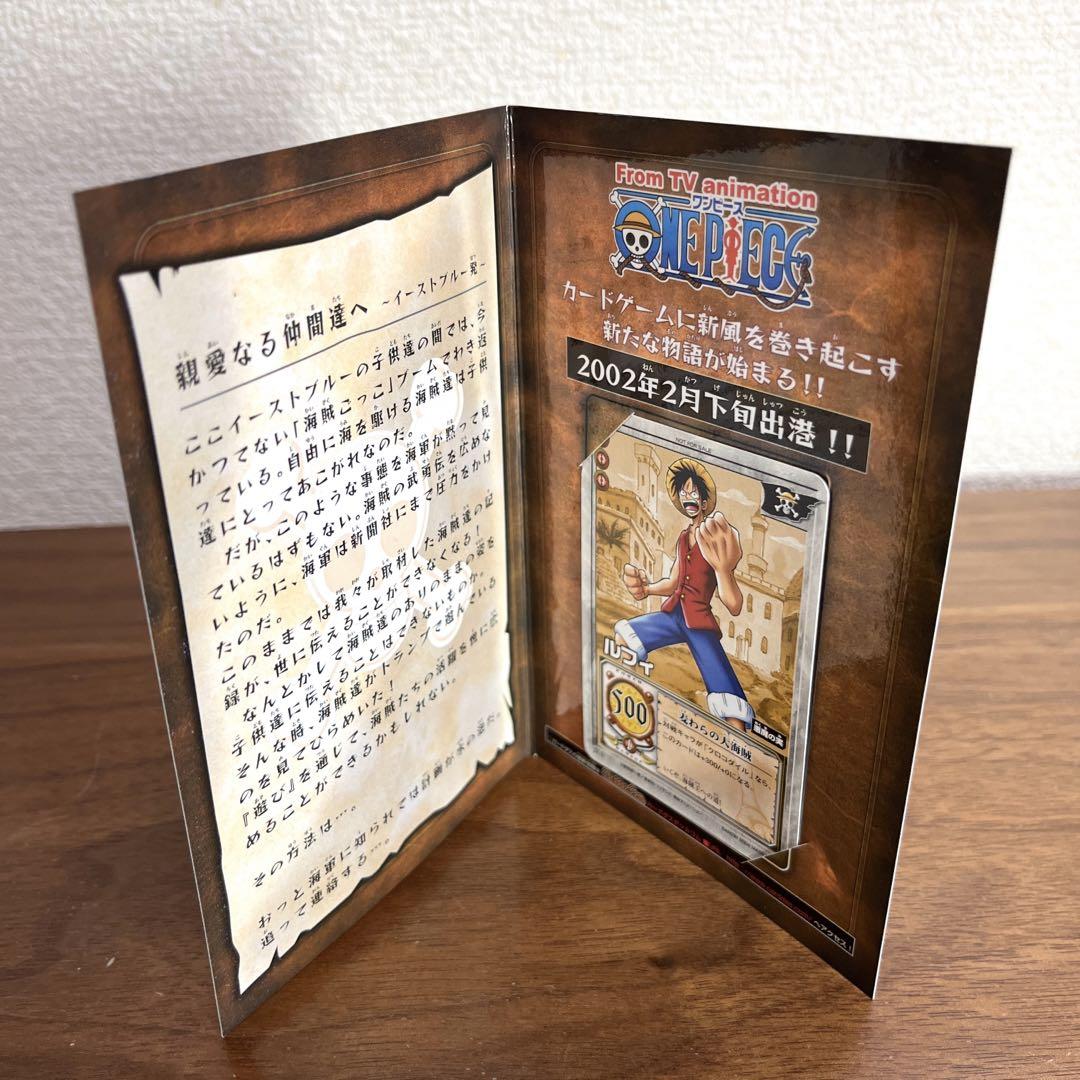 親愛なる仲間達へ ~イーストブルー発~
ここイーストブルーの子供達の間では、今
かつてない「海賊ごっこ」ブームでわき返
っている。自由に海を駆ける海賊達は子供
達にとってあこがれなのだ。
だが、このような事態を海軍が黙って見
ているはずもない。海賊の武勇伝を広めな
いように、海軍は新聞社にまで圧力をかけ
たのだ。
このままでは我々が取材した海賊達の記
録が、世に伝えることができなくなる！
なんとかして海賊達のありのままの姿を
子供達に伝えることはできないものか。
そんな時、海賊達がトランプで遊んでいる
のを見てひらめいた！
『遊び』を通じて、海賊たちの活躍を
めることができるかもしれない。
その方法は…。
おっと海軍に知られては
追って連絡する…。
From TV animation
ワンピース
ONE PIECE
カードゲームに新風を巻き起こす
新たな物語が始まる!!
2002年2月下旬出港!!
NOT FOR SALE
ルフィ
500
麦わらの大海賊
対戦キャラが「クロコダイル」なら、
このカードは+300/+0になる。
へアクセス！